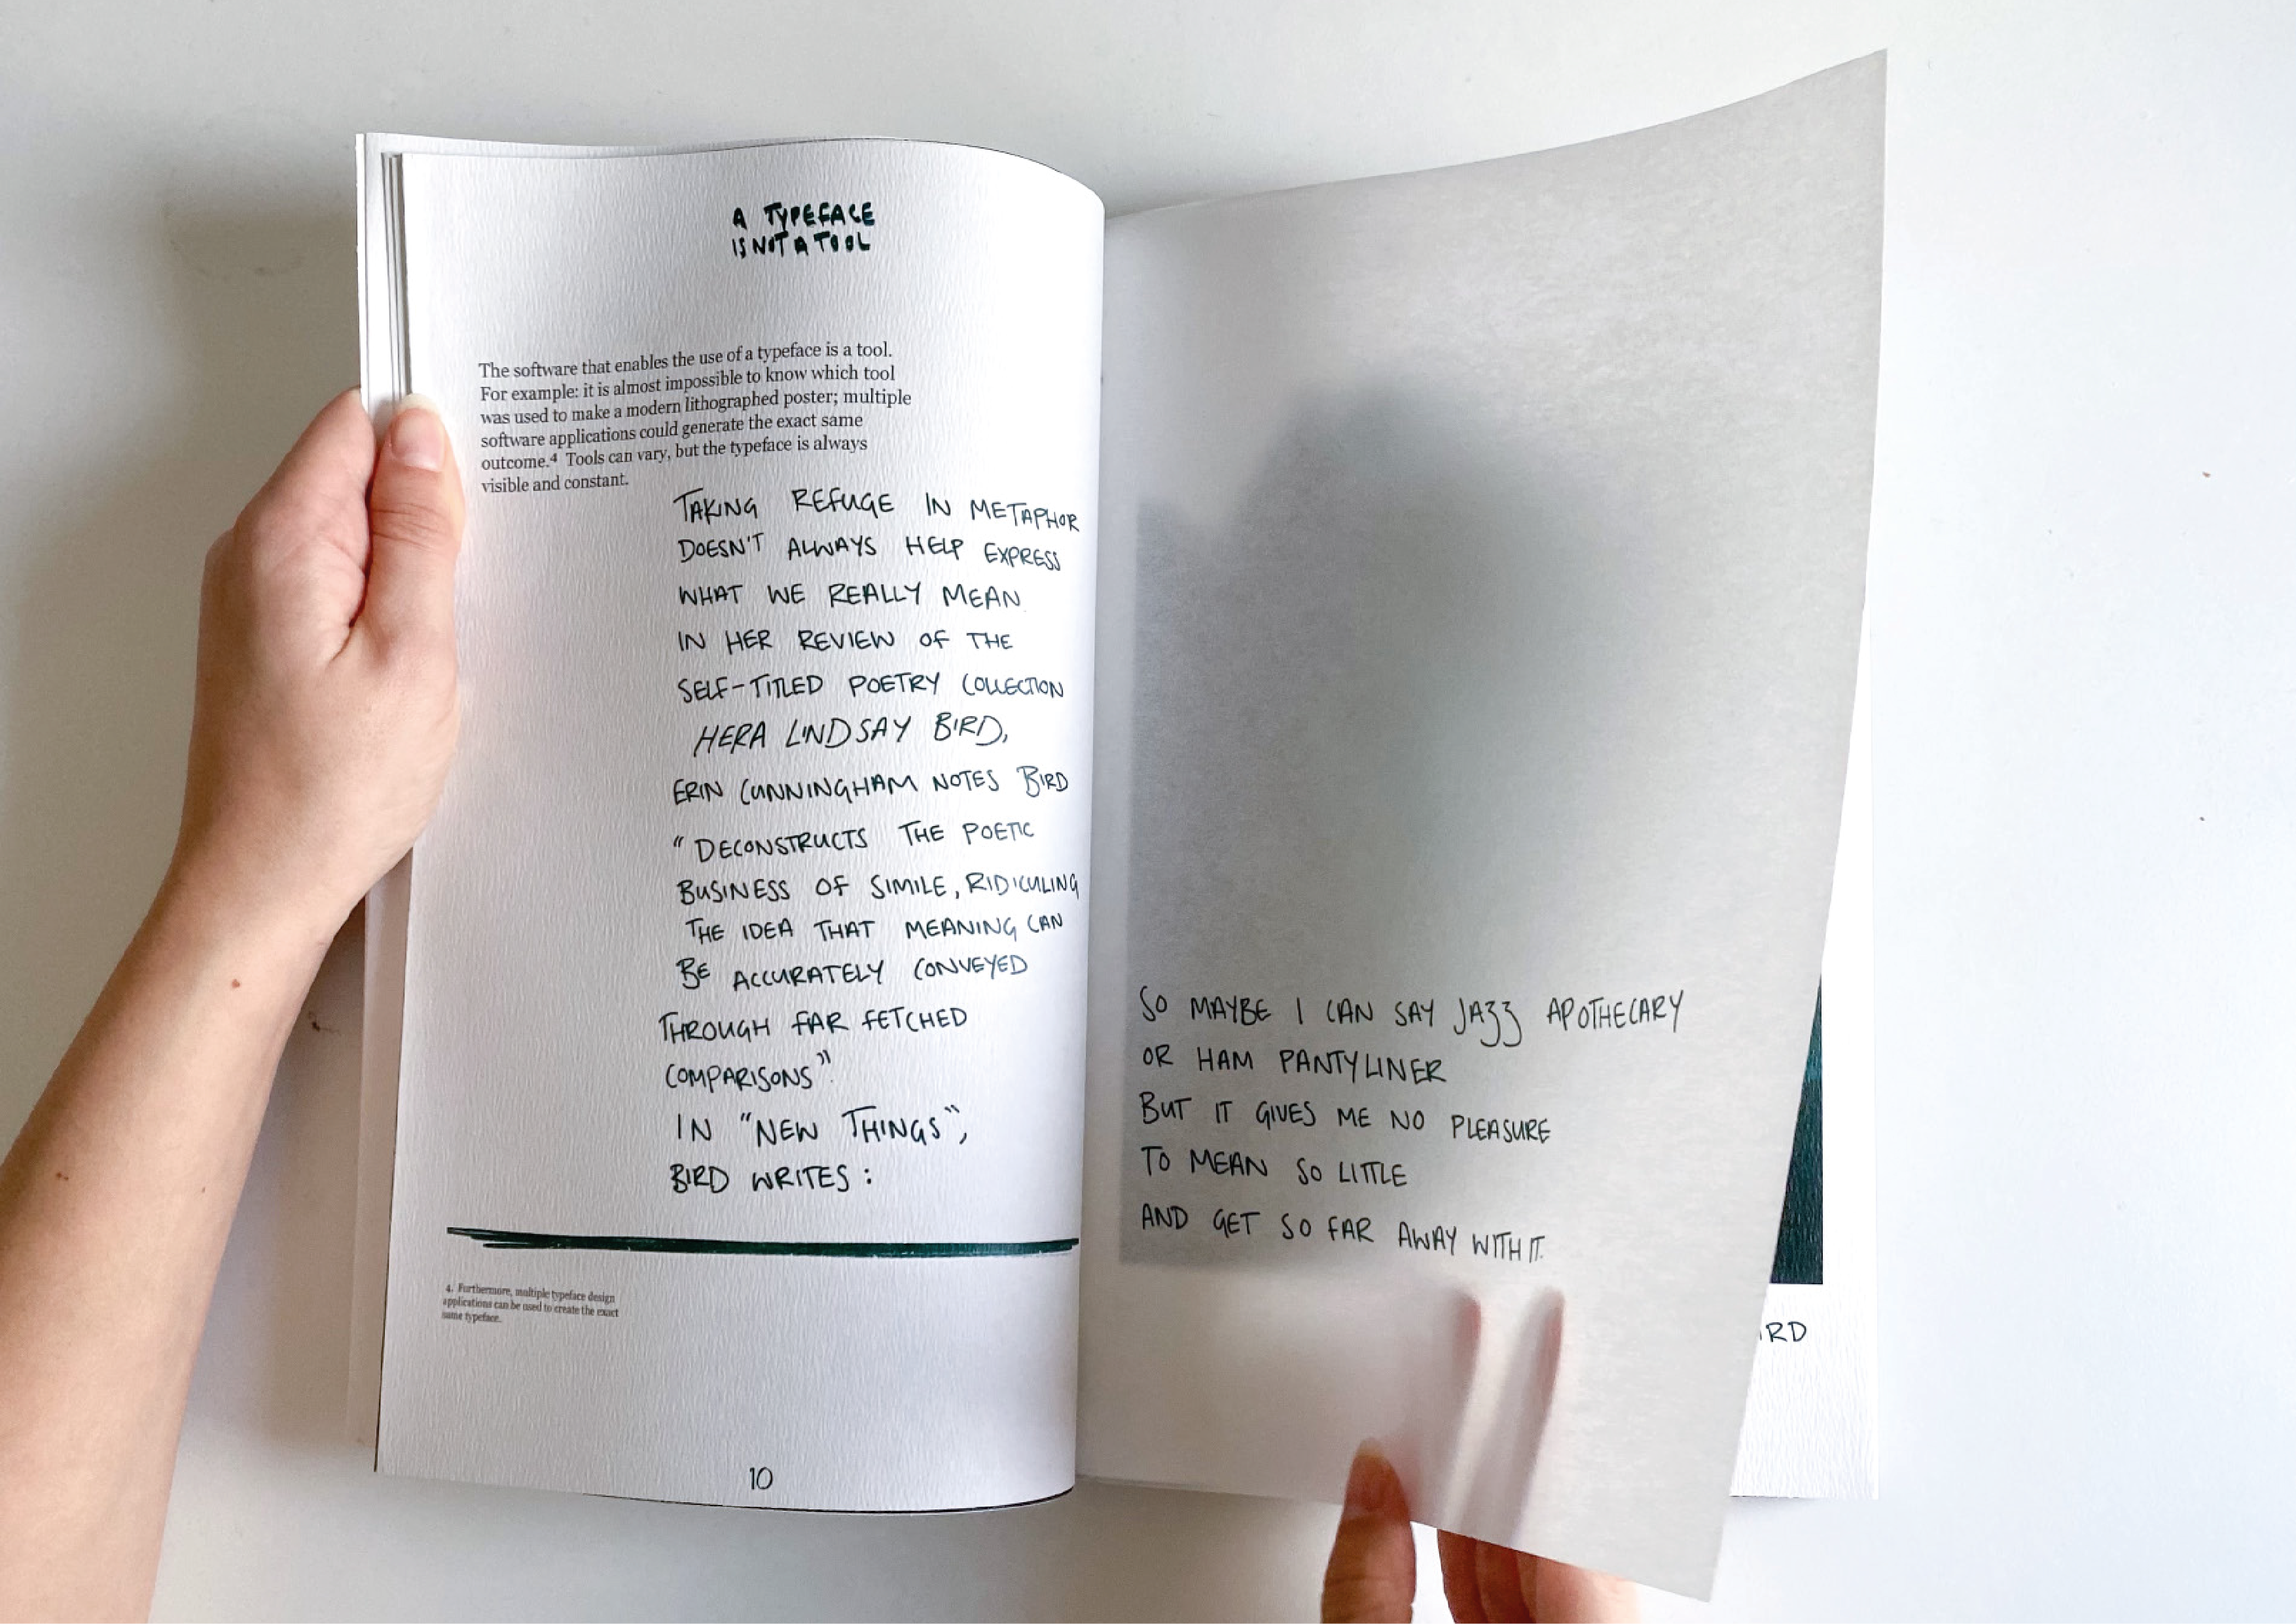 A TYPEFACE
IS NOT A TOOL
The software that enables the use of a typeface is a tool.
For example: it is almost impossible to know which tool
was used to make a modern lithographed poster; multiple
software applications could generate the exact same
outcome.⁴ Tools can vary, but the typeface is always
visible and constant.
TAKING REFUGE IN METAPHOR
DOESN'T ALWAYS HELP EXPRESS
WHAT WE REALLY MEAN
IN HER REVIEW OF THE
SELF-TITLED POETRY COLLECTION
HERA LINDSAY BIRD,
ERIN CUNNINGHAM NOTES BIRD
"DECONSTRUCTS THE POETIC
BUSINESS OF SIMILE, RIDICULING
THE IDEA THAT MEANING CAN
BE ACCURATELY CONVEYED
THROUGH FAR FETCHED
COMPARISONS".
IN "NEW THINGS",
BIRD WRITES:
4. Furthermore, multiple typeface design
applications can be used to create the exact
same typeface.
10
SO MAYBE I CAN SAY JAZZ APOTHECARY
OR HAM PANTYLINER
BUT IT GIVES ME NO PLEASURE
TO MEAN SO LITTLE
AND GET SO FAR AWAY WITH IT.
IRD